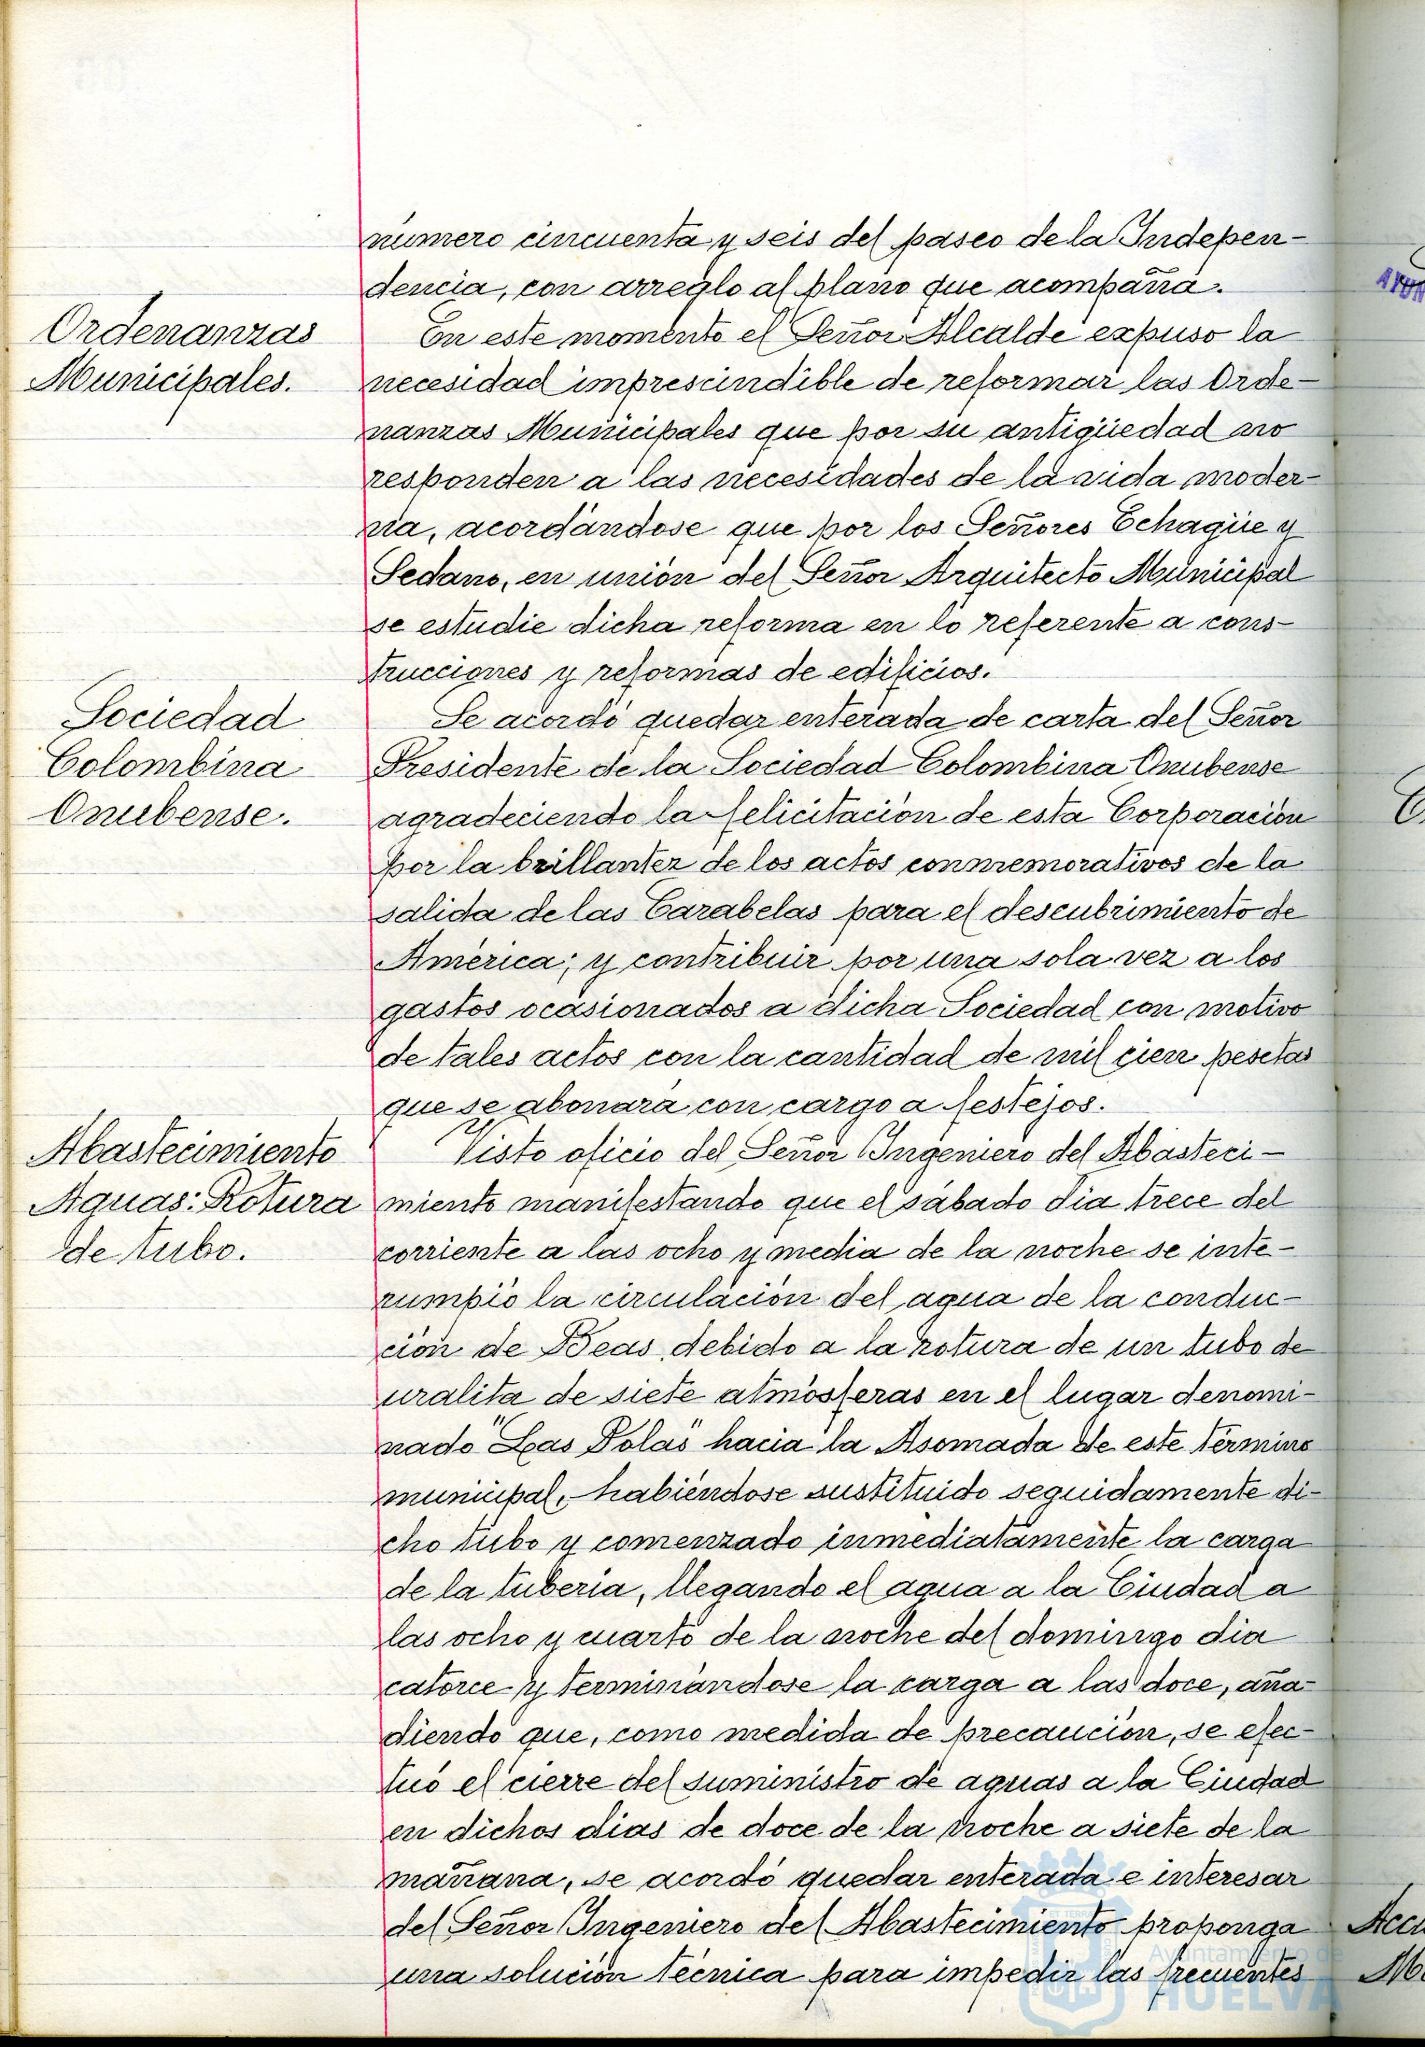 número cincuenta y seis del paseo de la Indepen-
dencia, con arreglo al plano que acompaña.
Ordenanzas
Municipales.
En este momento el Señor Alcalde expuso la
necesidad imprescindible de reformar las Orde-
nanzas Municipales que por su antigüedad no
responden a las necesidades de la vida moder-
na, acordándose que por los Señores Echagüe y
Sedano, en unión del Señor Arquitecto Municipal
se estudie dicha reforma en lo referente a cons-
trucciones y reformas de edificios.
Sociedad
Colombina
Onubense.
Se acordó quedar enterada de carta del Señor
Presidente de la Sociedad Colombina Onubense
agradeciendo la felicitación de esta Corporación
por la brillantez de los actos conmemorativos de la
salida de las Carabelas para el descubrimiento de
América; y contribuir por una sola vez a los
gastos ocasionados a dicha Sociedad con motivo
de tales actos con la cantidad de mil cien pesetas
que se abonará con cargo a festejos.
Abastecimiento
Aguas: Rotura
de tubo.
Visto oficio del Señor Ingeniero del Abasteci-
miento manifestando que el sábado día trece del
corriente a las ocho y media de la noche se inte-
rumpió la circulación del agua de la conduc-
ción de Beas debido a la rotura de un tubo de
uralita de siete atmósferas en el lugar denomi-
nado "Las Polas" hacia la Asomada de este término
municipal, habiéndose sustituido seguidamente di-
cho tubo y comenzado inmediatamente la carga
de la tubería, llegando el agua a la Ciudad a
las ocho y cuarto de la noche del domingo día
catorce y terminándose la carga a las doce, aña-
diendo que, como medida de precaución, se efec-
tuó el cierre del suministro de aguas a la Ciudad
en dichos días de doce de la noche a siete de la
mañana, se acordó quedar enterada e interesar
del Señor Ingeniero del Abastecimiento proponga
una solución técnica para impedir las frecuentes
Ayuntamiento de
HUELVA